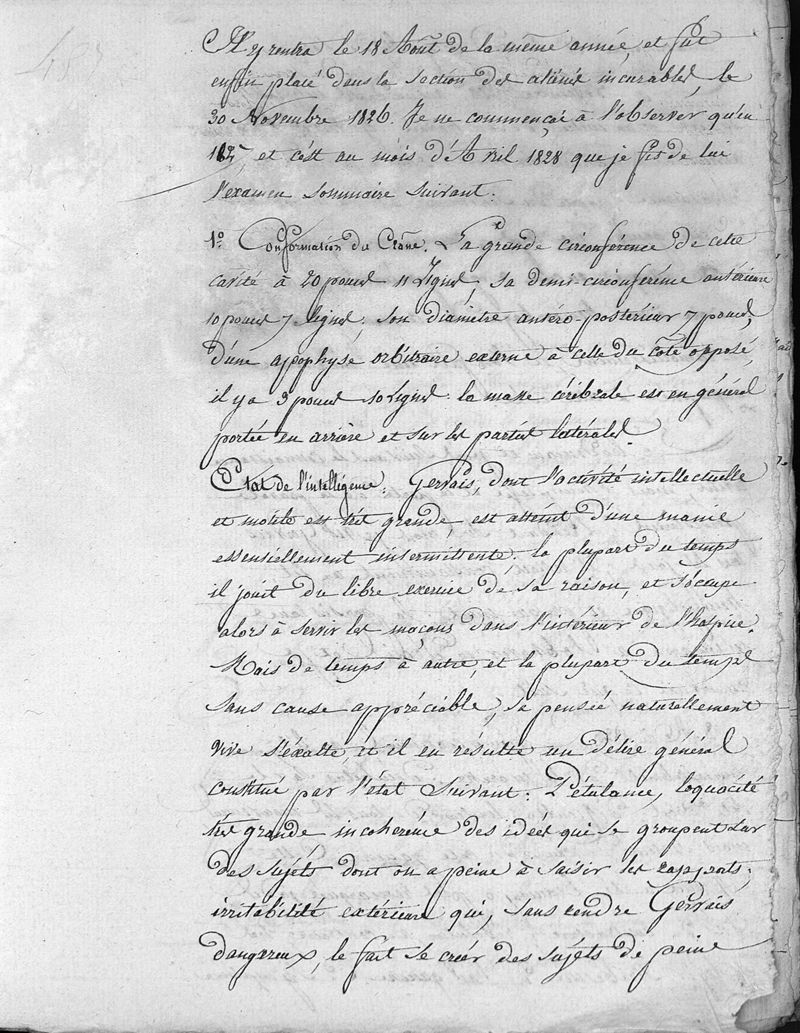 Il y rentra le 18 Août de la même année, et fut
enfin placé dans la section des aliénés incurables, le
30 Novembre 1826. Je ne commençai à l'observer qu'en
et c'est au mois d'Avril 1828 que je fis de lui
l'examen sommaire suivant.
1.º Conformation du Crâne. La grande circonférence de cette
cavité à 20 pouces 11 lignes, sa demi-circonférence antérieure
10 pouces 7 lignes; son diamètre antéro-postérieur 7 pouces,
d'une apophyse orbitraire externe à celle du côté opposé,
il y a 3 pouces 10 lignes: la masse cérébrale est en général
portée en arrière et sur les parties latérales.
Etat de l'intelligence; Gervais, dont l'activité intellectuelle
et motile est très grande, est atteint d'une manie
essensiellement intermittente. la plupart du temps
il jouit du libre exercice de sa raison, et s'occupe
alors à servir les maçons dans l'intérieur de l'hospice.
Mais de temps à autre, et la plupart du temps
sans cause appréciable, sa pensée naturellement
vive s'éxalte, et il en résulte un délire général
constitué par l'état suivant: Pétulance, loquacité
très grande incohérence des idées qui se groupent sur
des sujets dont on a peine à saisir les rapports;
irritabilité extérieure qui, sans rendre Gervais
dangareux, le fait se créer des sujets de peine